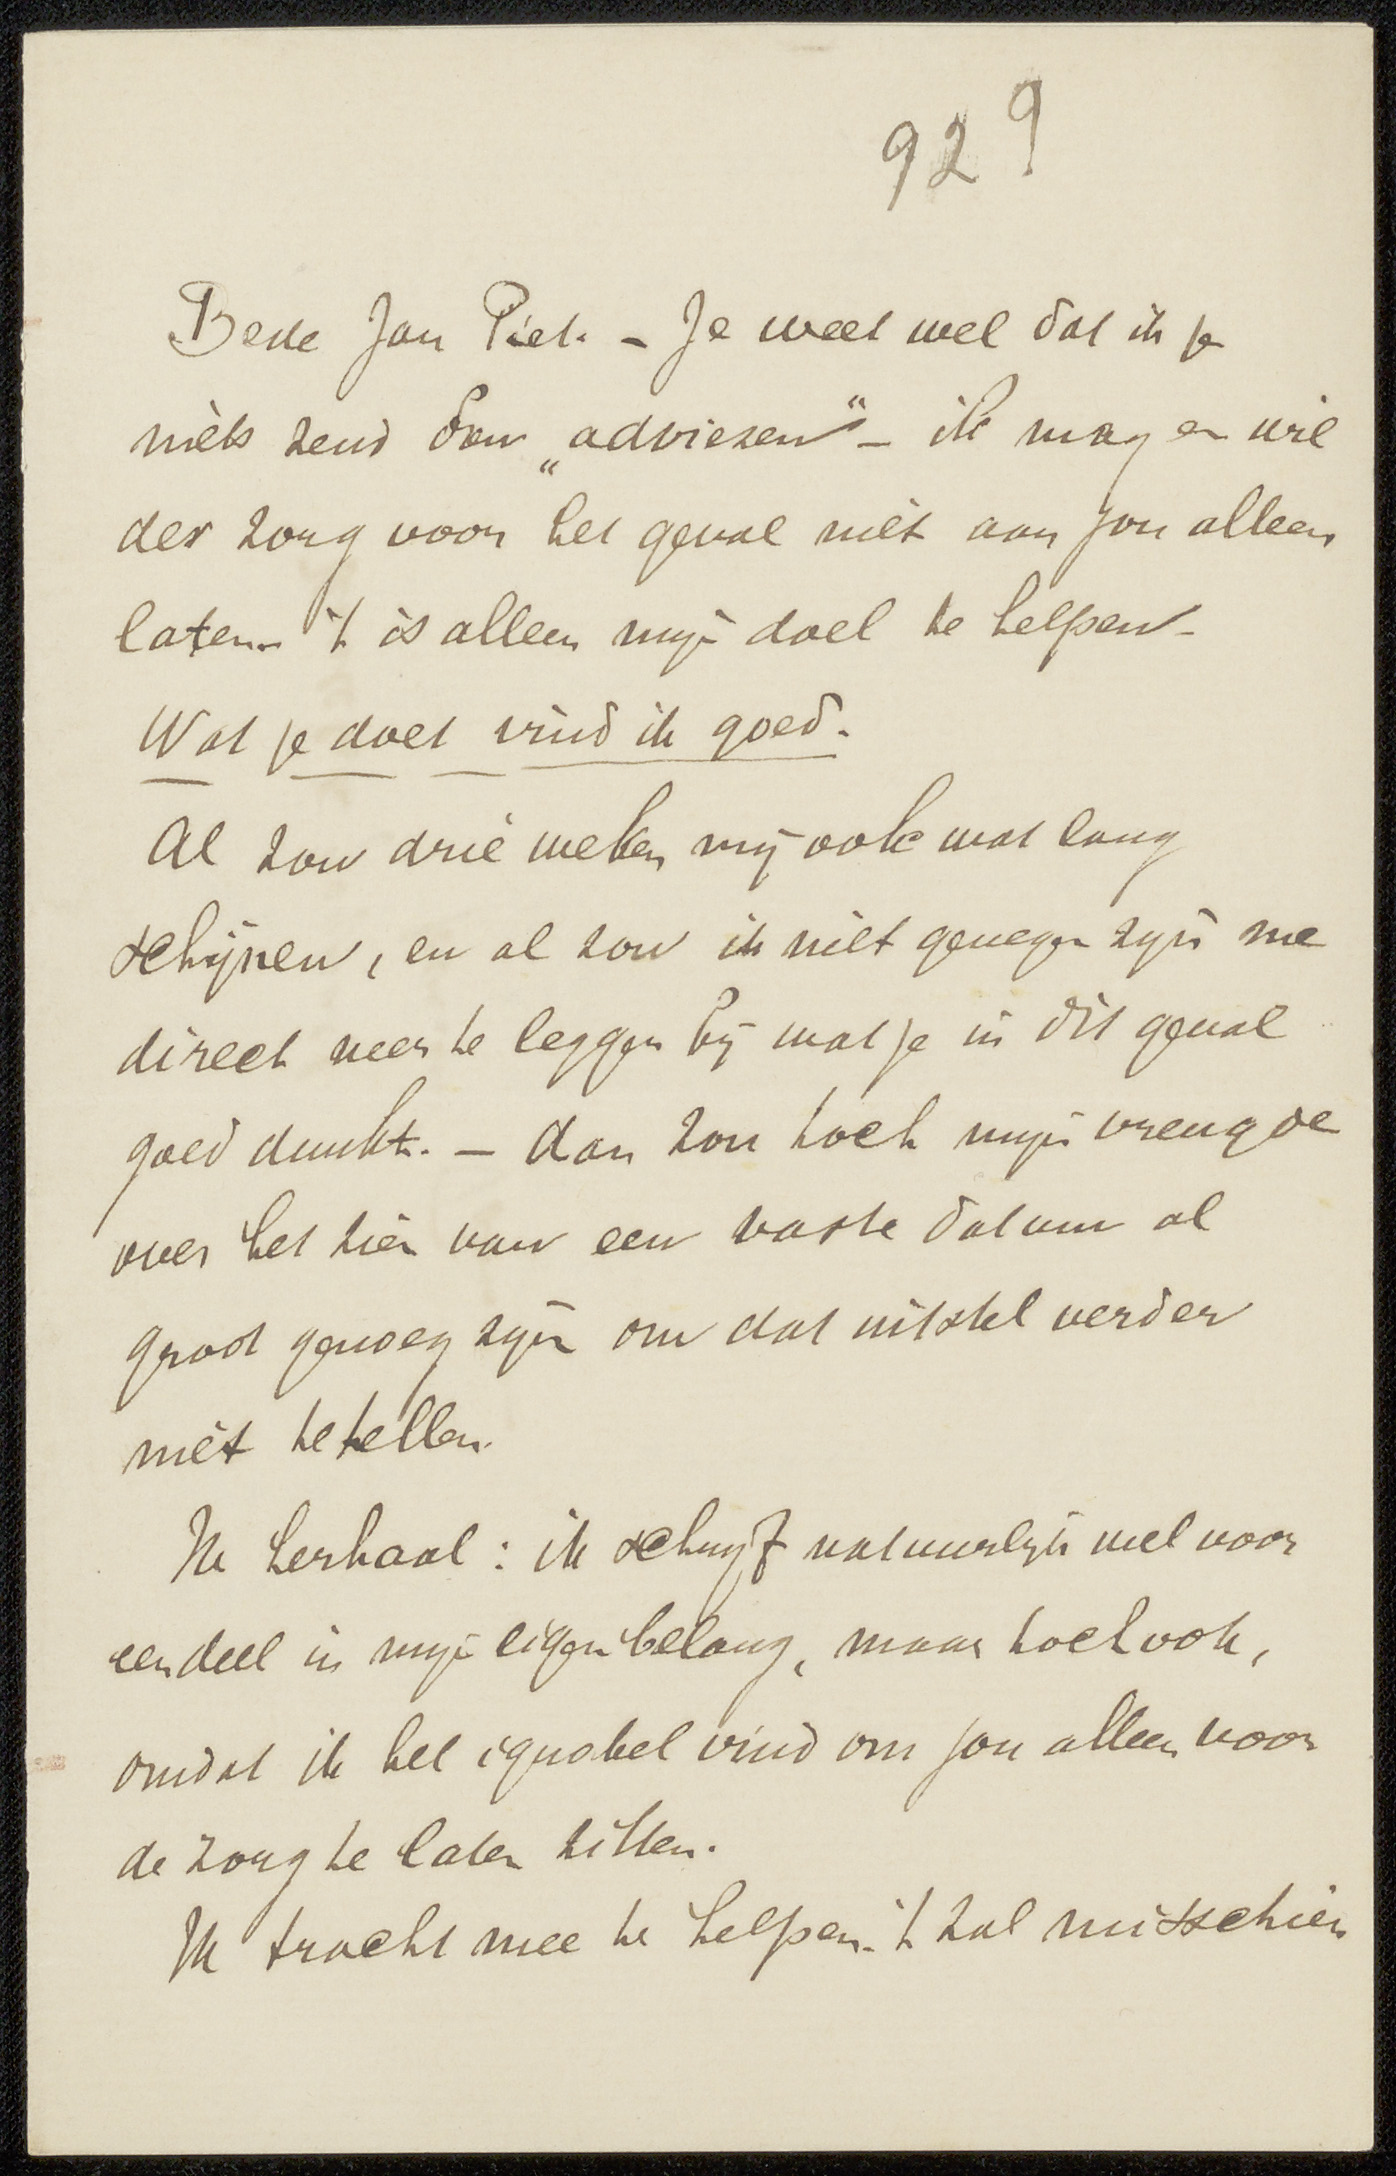 929
Beste Jan Piet. – Je weet wel dat ik je
niets zend dan „adviezen" – ik mag en wil
der zorg voor het geval niet aan jou alleen
laten. 't is alleen mijn doel te helpen –
Wat je doet vind ik goed.
Al zou drie weken mij ook wat lang
schijnen, en al zou ik niet genegen zijn me
direct neer te leggen bij wat je in dit geval
goed dunkt. – dan zou toch mijn vreugde
over het zien van een vaste datum al
groot genoeg zijn om dat uitstel verder
niet te tellen.
Ik herhaal: ik schrijf natuurlijk wel voor
een deel in mijn eigen belang, maar toch ook,
omdat ik het ignobel vind om jou alleen voor
de zorg te laten zitten.
Ik tracht mee te helpen. 't zal misschien